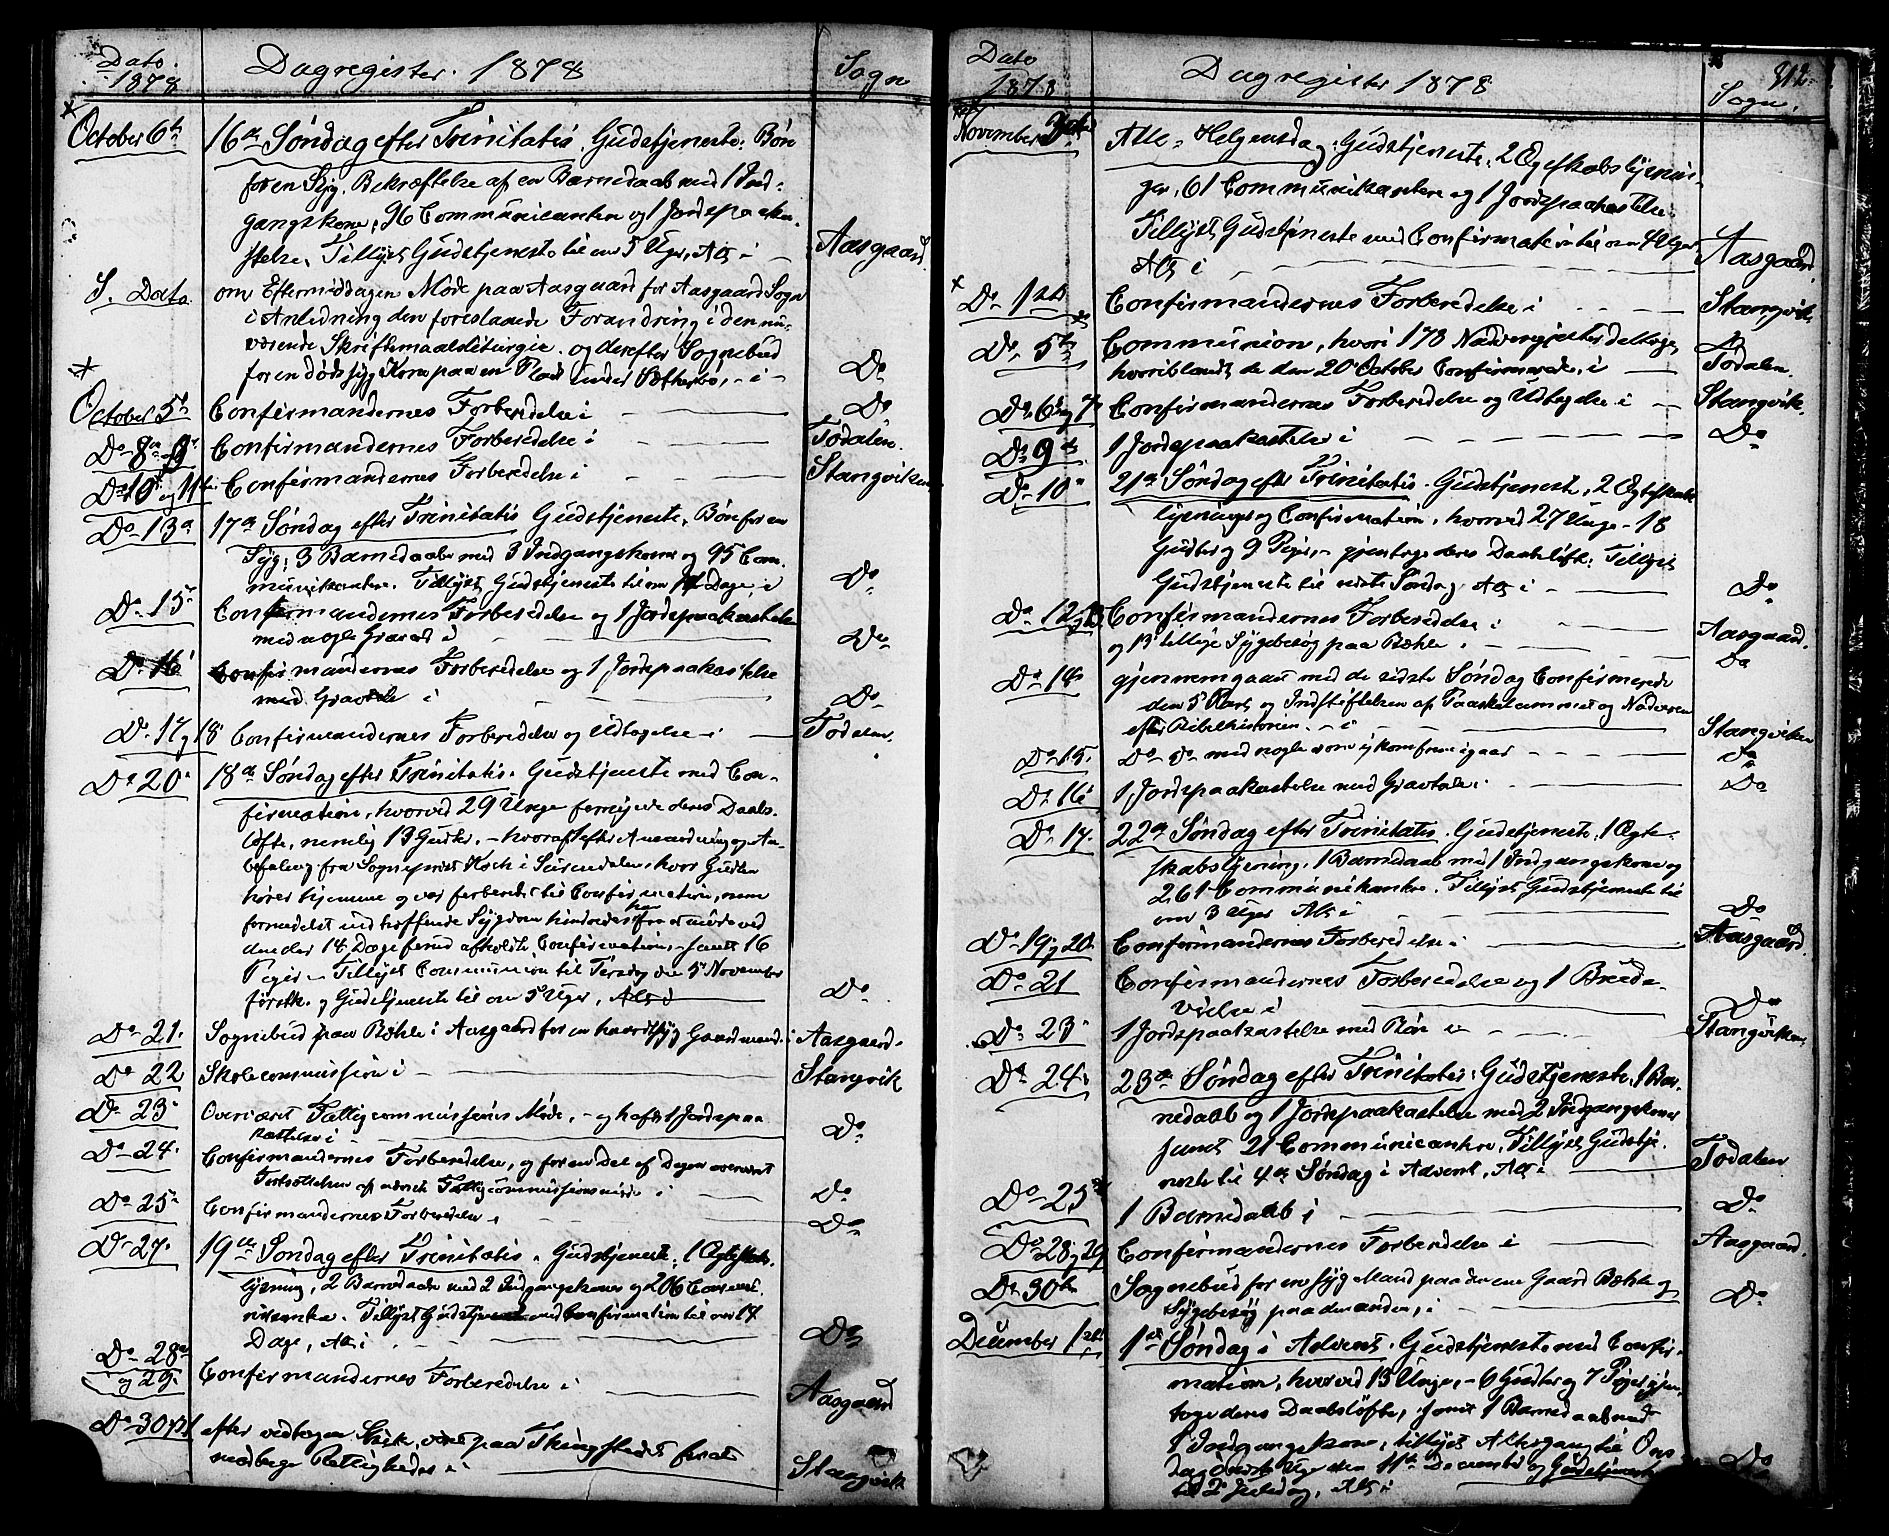 Dato 1878 Dagregister 1878 Sogn
October 6te 16de Søndag efter Trinitatis. Gudstjeneste, Bøn
for en Syg. Bekræftelse af en Barnedaab med 1 Ind-
gangskone, 96 Communicanter og 1 Jordspaaka-
stelse, Tillyst Gudstjeneste til om 5 Uger, Alt i - Aasgaard
S. Dato. om Eftermiddagen Møde paa Aasgaard for Aasgaard Sogn
i Anledning den foreslaaede Forandring i den nu-
værende Skriftemaalsliturgie. og derefter Sognebud
for en dødssyg Kone paa en Plads under Sætherbø, - i - Do
October 5te Confirmandernes Forberedelse i Do
Do 8de - 9de Confirmandernes Forberedelse i Todalen.
Do 10de og 11te Confirmandernes Forberedelse i Stangviken
Do 13de 17de Søndag efter Trinitatis Gudstjeneste, Bøn for en
Syg, 3 Barnedaabe med 3 Indgangskoner og 95 Com-
munikanter. Tillyst Gudstjeneste til om 14 Dage, i Do
Do 15de Confirmandernes Forberedelse og 1 Jordspaakastelse
med nogle Gravord i Do
Do 16de Confirmandernes Forberedelse og 1 Jordspaakastelse
med Gravtale i Do
Do 17 og 18 Confirmandernes Forberedelse og Udtagelse i Todalen.
Do 20de 18de Søndag efter Trinitatis. Gudstjeneste med Con-
firmation, hvorved 29 Unge fornyede deres Daabs-
løfte, nemlig 13 Gutter, - hvoraf efter Anmodning og An-
befaling fra Sognepræst Koch i Surendalen, hvor Gutten
hører hjemme og var forberedt til Confirmation, men
formedelst indtræffende Sygdom hindredes han fra at møde ved
den der 14 Dage forud afholdte Confirmation, - samt 16
Piger. - Tillyst Communion til Tirsdag den 5te November
førstk. og Gudstjeneste til om 5 Uger, Alt i Do
Do 21. Sognebud paa Bæhle i Aasgaard for en haardt syg Gaardmand. i Aasgaard.
Do 22 Skolecommission i Stangvik
Do 23 Overværet Fattigcommissions Møde, - og havte 1 Jordspaa-
kastelse i Do
Do 24. Confirmandernes Forberedelse, og for en Del af Dagen overværet
Fortsættelsen af nævnte Fattigcommissionsmøde i Do
Do 25de Confirmandernes Forberedelse i Do
Do 27. 19de Søndag efter Trinitatis. Gudstjeneste, 1 Ægteskabs-
lysning, 2 Barnedaabe med 2 Indgangskoner og 206 Commu-
nikanter. Tillyst Gudstjeneste med Confirmation til om 14
Dage, Alt i. Do
Do 28de og 29. Confirmandernes Forberedelse i Aasgaard
Do 30 efter vedtagen Skik, paa Thingstedet for at
modtage Rettigheder i Stangvik
Dato 1878 Dagregister 1878 Sogn. 312
November Alle-Helgensdag, Gudstjeneste, 2 Ægteskabslysnin-
ger, 61 Communikantere og 1 Jordspaakastelse.
Tillyst Gudstjeneste med Confirmation til om 4 Uger,
Alt i Aasgaard
Do 1ste Confirmandernes Forberedelse i Stangvik.
Do 5te Communion, hvori 178 Nadvergjester deltoge,
hvoriblandt de den 20 October Confirmerede, i Todalen.
Do 6 og 7de Confirmandernes Forberedelse og Udtagelse i Stangvik.
Do 9de 1 Jordspaakastelse i Do
Do 10de 21de Søndag efter Trinitatis. Gudstjeneste, 2 Ægteskabs-
lysninger og Confirmation, hvorved 27 Unge - 18
Gutter og 9 Piger, - gjentoge deres Daabsløfte. Tillyst
Gudstjeneste til næste Søndag, Alt i - Do
Do 12 og 13 Confirmandernes Forberedelse i Aasgaard.
og 13 tillige Sygebesøg paa Bæhle. Do
Do 14de gjennemgaaet med de sidste Søndag Confirmerede
den 5te Part, og Indstiftelsen af Paaskelammet og Nadveren
efter Bibelhistorien. - i - Stangviken
Do 15. Do Do med nogle som ej kom frem igaar Do
Do 16 1 Jordspaakastelse med Gravtale i Do
Do 17. 22de Søndag efter Trinitatis. Gudstjeneste, 1 Ægte-
skabslysning, 1 Barnedaab med 1 Indgangskone og
261 Communikanter. Tillyst Gudstjeneste til
om 3 Uger Alt i Do
Do 19 og 20. Confirmandernes Forberedelse i Aasgaard.
Do 21 Confirmandernes Forberedelse og 1 Brude-
vielse i Do
Do 23. 1 Jordspaakastelse med Bøn i Stangviken
Do 24. 23de Søndag efter Trinitatis, Gudstjeneste, 1 Bar-
nedaab og 1 Jordspaakastelse med 2 Indgangskoner
samt 21 Communicanter, Tillyst Gudstje-
neste til 4de Søndag i Advent, Alt i Todalen
Do 25de 1 Barnedaab i Do
Do 28 og 29 Confirmandernes Forberedelse i Aasgaard.
Do 30te Sognebud for en syg Mand paa den ene Gaard Bæhle og
Sygebesøg paa den anden, i Do
December 1ste 1ste Søndag i Advent. Gudstjeneste med Confir-
mation, hvorved 13 Unge, - 6 Gutter og 7 Piger gjen-
toge deres Daabsløfte, samt 1 Barnedaab med
1 Indgangskone, tillyst Altergang til Ons-
dag næste Uge den 11te December og Gudstjeneste
til 2den Juledag, Alt i Do